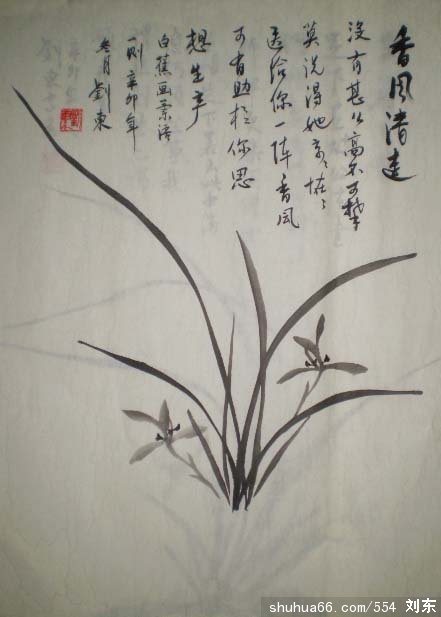 香风清遠
没有甚么高不可攀
莫说得她奇々怪々
送给你一阵香风
可有助於你思
想生产
白蕉画蘭语
一则辛卯年
冬月劉東
shuhua66.com/554 刘东